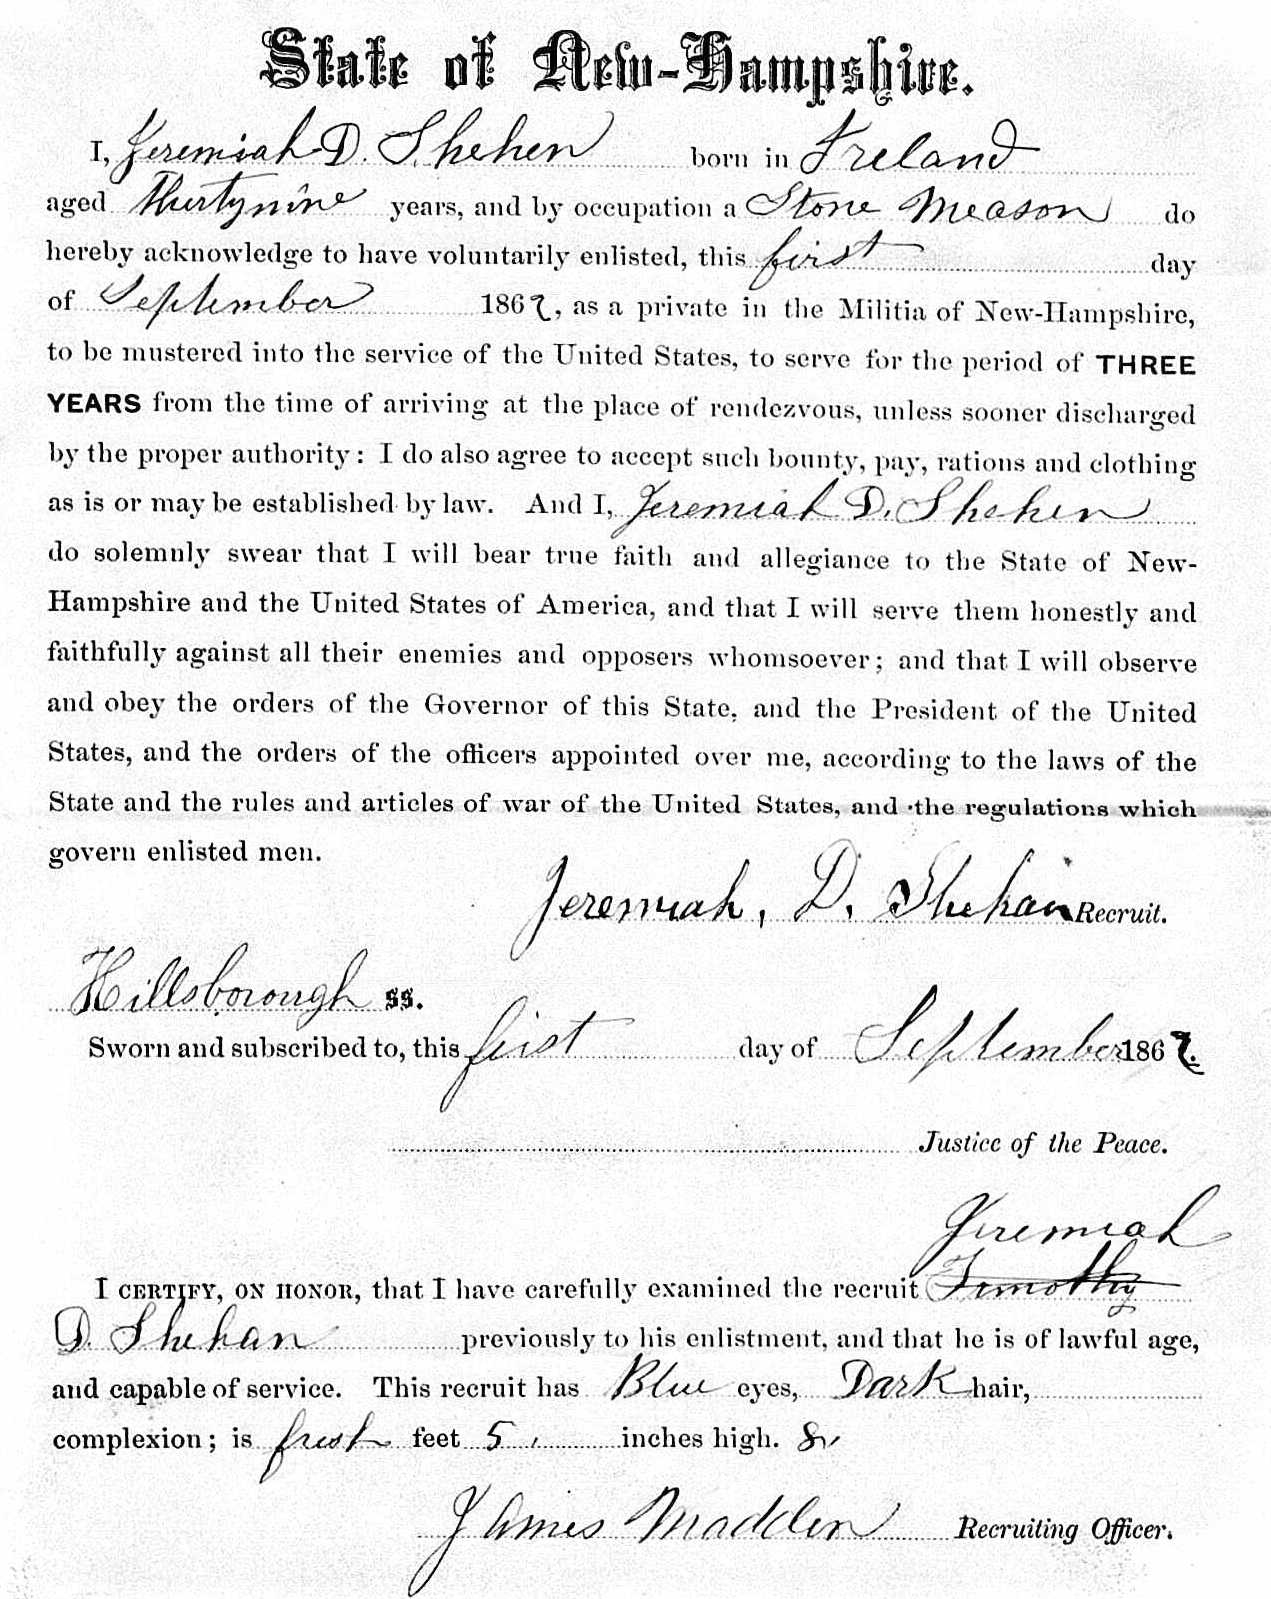 State of New-Hampshire.
I, Jeremiah D. Shehen born in Ireland
aged Thirtynine years, and by occupation a Stone Meason do
hereby acknowledge to have voluntarily enlisted, this first day
of September 1862, as a private in the Militia of New-Hampshire,
to be mustered into the service of the United States, to serve for the period of THREE
YEARS from the time of arriving at the place of rendezvous, unless sooner discharged
by the proper authority: I do also agree to accept such bounty, pay, rations and clothing
as is or may be established by law. And I, Jeremiah D. Shehen
do solemnly swear that I will bear true faith and allegiance to the State of New-
Hampshire and the United States of America, and that I will serve them honestly and
faithfully against all their enemies and opposers whomsoever; and that I will observe
and obey the orders of the Governor of this State, and the President of the United
States, and the orders of the officers appointed over me, according to the laws of the
State and the rules and articles of war of the United States, and the regulations which
govern enlisted men.
Jeremiah, D. Shehan Recruit.
Hillsborough ss.
Sworn and subscribed to, this first day of September 1862.
Justice of the Peace.
Jeremiah
I CERTIFY, ON HONOR, that I have carefully examined the recruit Timothy
D. Shehan previously to his enlistment, and that he is of lawful age,
and capable of service. This recruit has Blue eyes, Dark hair,
complexion; is fresh feet 5 inches high. 8
James Madden Recruiting Officer.